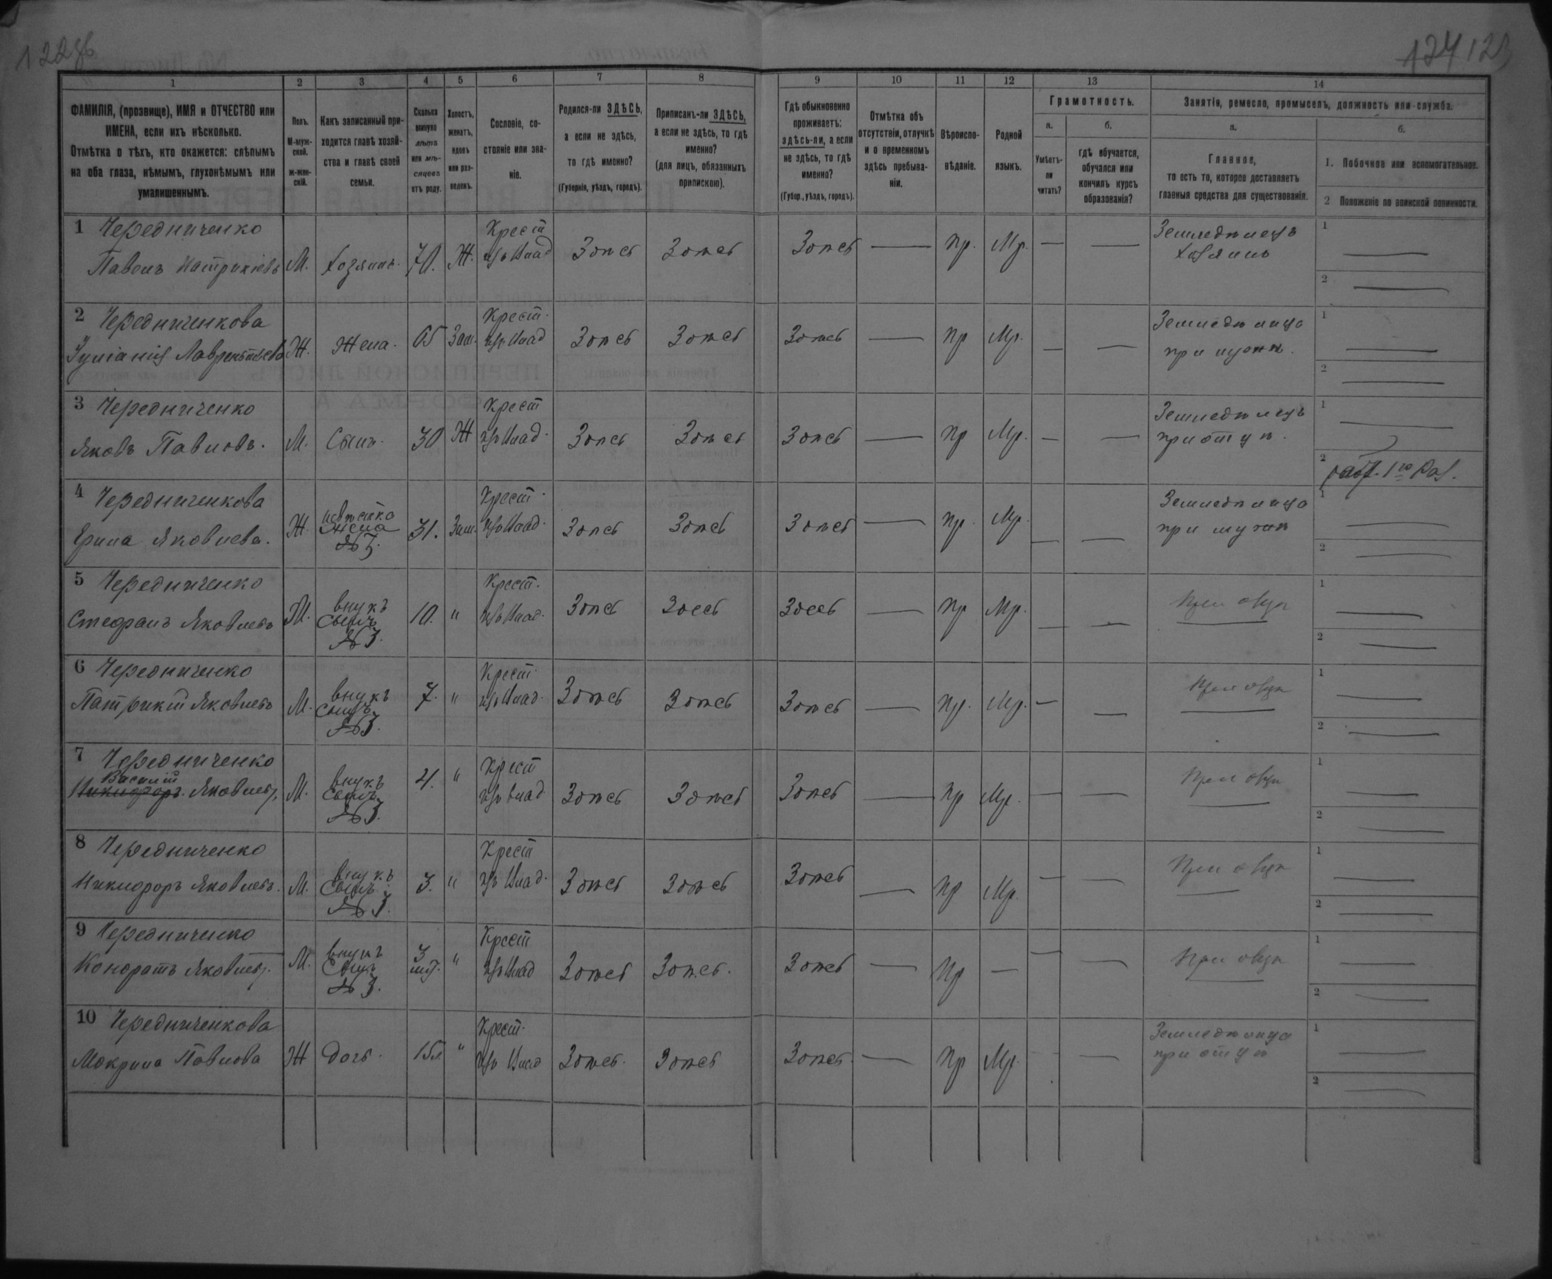 122об
124 123
1 2 3 4 5 6 7 8 9 10 11 12 13 14
ФАМИЛІЯ, (прозвище), ИМЯ и ОТЧЕСТВО или
ИМЕНА, если ихъ нѣсколько.
Отмѣтка о тѣхъ, кто окажется: слѣпымъ
на оба глаза, нѣмымъ, глухонѣмымъ или
умалишеннымъ.
Полъ.
М-муж-
ской.
ж-жен-
скій.
Какъ записанный при-
ходится главѣ хозяй-
ства и главѣ своей
семьи.
Сколько
минуло
лѣтъ
или мѣ-
сяцевъ
отъ роду.
Холостъ,
женатъ,
вдовъ
или раз-
веденъ.
Сословіе, со-
стояніе или зва-
ніе.
Родился-ли ЗДѢСЬ,
а если не здѣсь,
то гдѣ именно?
(Губернія, уѣздъ, городъ).
Приписанъ-ли ЗДѢСЬ,
а если не здѣсь, то гдѣ
именно?
(для лицъ, обязанныхъ
припискою).
Гдѣ обыкновенно
проживаетъ:
здѣсь-ли, а если
не здѣсь, то гдѣ
именно?
(Губер., уѣздъ, городъ).
Отмѣтка объ
отсутствіи, отлучкѣ
и о временномъ
здѣсь пребыва-
ніи.
Вѣроиспо-
вѣданіе.
Родной
языкъ.
Грамотность.
а.
Умѣетъ-
ли
читать?
б.
гдѣ обучается,
обучался или
кончилъ курсъ
образованія?
Занятіе, ремесло, промыселъ, должность или служба.
а.
Главное,
то есть то, которое доставляетъ
главныя средства для существованія.
б.
1. Побочное или вспомогательное.
2 Положеніе по воинской повинности.
1 Чередниченко
Павелъ Патрикіевъ М. хозяинъ. 70. Ж. Крест Здѣсь Здѣсь Здѣсь — пр. Мр. — — Земледѣлецъ
хозяинъ
1 —
2 —
2 Чередниченкова
Лаврентьева Ж. Жена. 65 Зам. Крест. Здѣсь Здѣсь Здѣсь пр Мр. — — Земледѣлица
при мужѣ.
1 —
2 —
3 Чередниченко
Яковъ Павловъ. М. Сынъ. 30 Ж Крест Здѣсь Здѣсь Здѣсь — пр Мр. — — Земледѣлецъ
при отцѣ.
1 —
2
4 Чередниченкова
Ерина Яковлева. Ж невѣстка
жена
№ 3. 31. Зам. Крест. Здѣсь Здѣсь Здѣсь — пр. Мр. — — Земледѣлица
при мужѣ
1 —
2 —
5 Чередниченко
Стефанъ Яковлевъ М. внукъ
сынъ
№ 3. 10. " Крест. Здѣсь Здѣсь Здѣсь — пр Мр. — — При отцѣ
1 —
2 —
6 Чередниченко
Патрикій Яковлевъ М. внукъ
сынъ
№ 3. 7. " Крест. Здѣсь Здѣсь Здѣсь — пр. Мр. — — При отцѣ
1 —
2 —
7 Чередниченко
Василій
Никифоръ Яковлевъ. М. внукъ
сынъ
№ 3. 4. " Крест Здѣсь Здѣсь Здѣсь — пр Мр. — — При отцѣ
1 —
2 —
8 Чередниченко
Никифоръ Яковлевъ. М. внукъ
сынъ
№ 3. 3. " Крест Здѣсь Здѣсь Здѣсь — пр Мр. — — При отцѣ
1 —
2 —
9 Чередниченко
Кондратъ Яковлевъ. М. внукъ
сынъ
№ 3. 3 " Крест Здѣсь Здѣсь. Здѣсь — пр — — — При отцѣ
1 —
2 —
10 Чередниченкова
Мокрина Павлова Ж Дочь. 15л " Крест. Здѣсь. Здѣсь Здѣсь — пр Мр. — Земледѣлица
при отцѣ
1 —
2 —